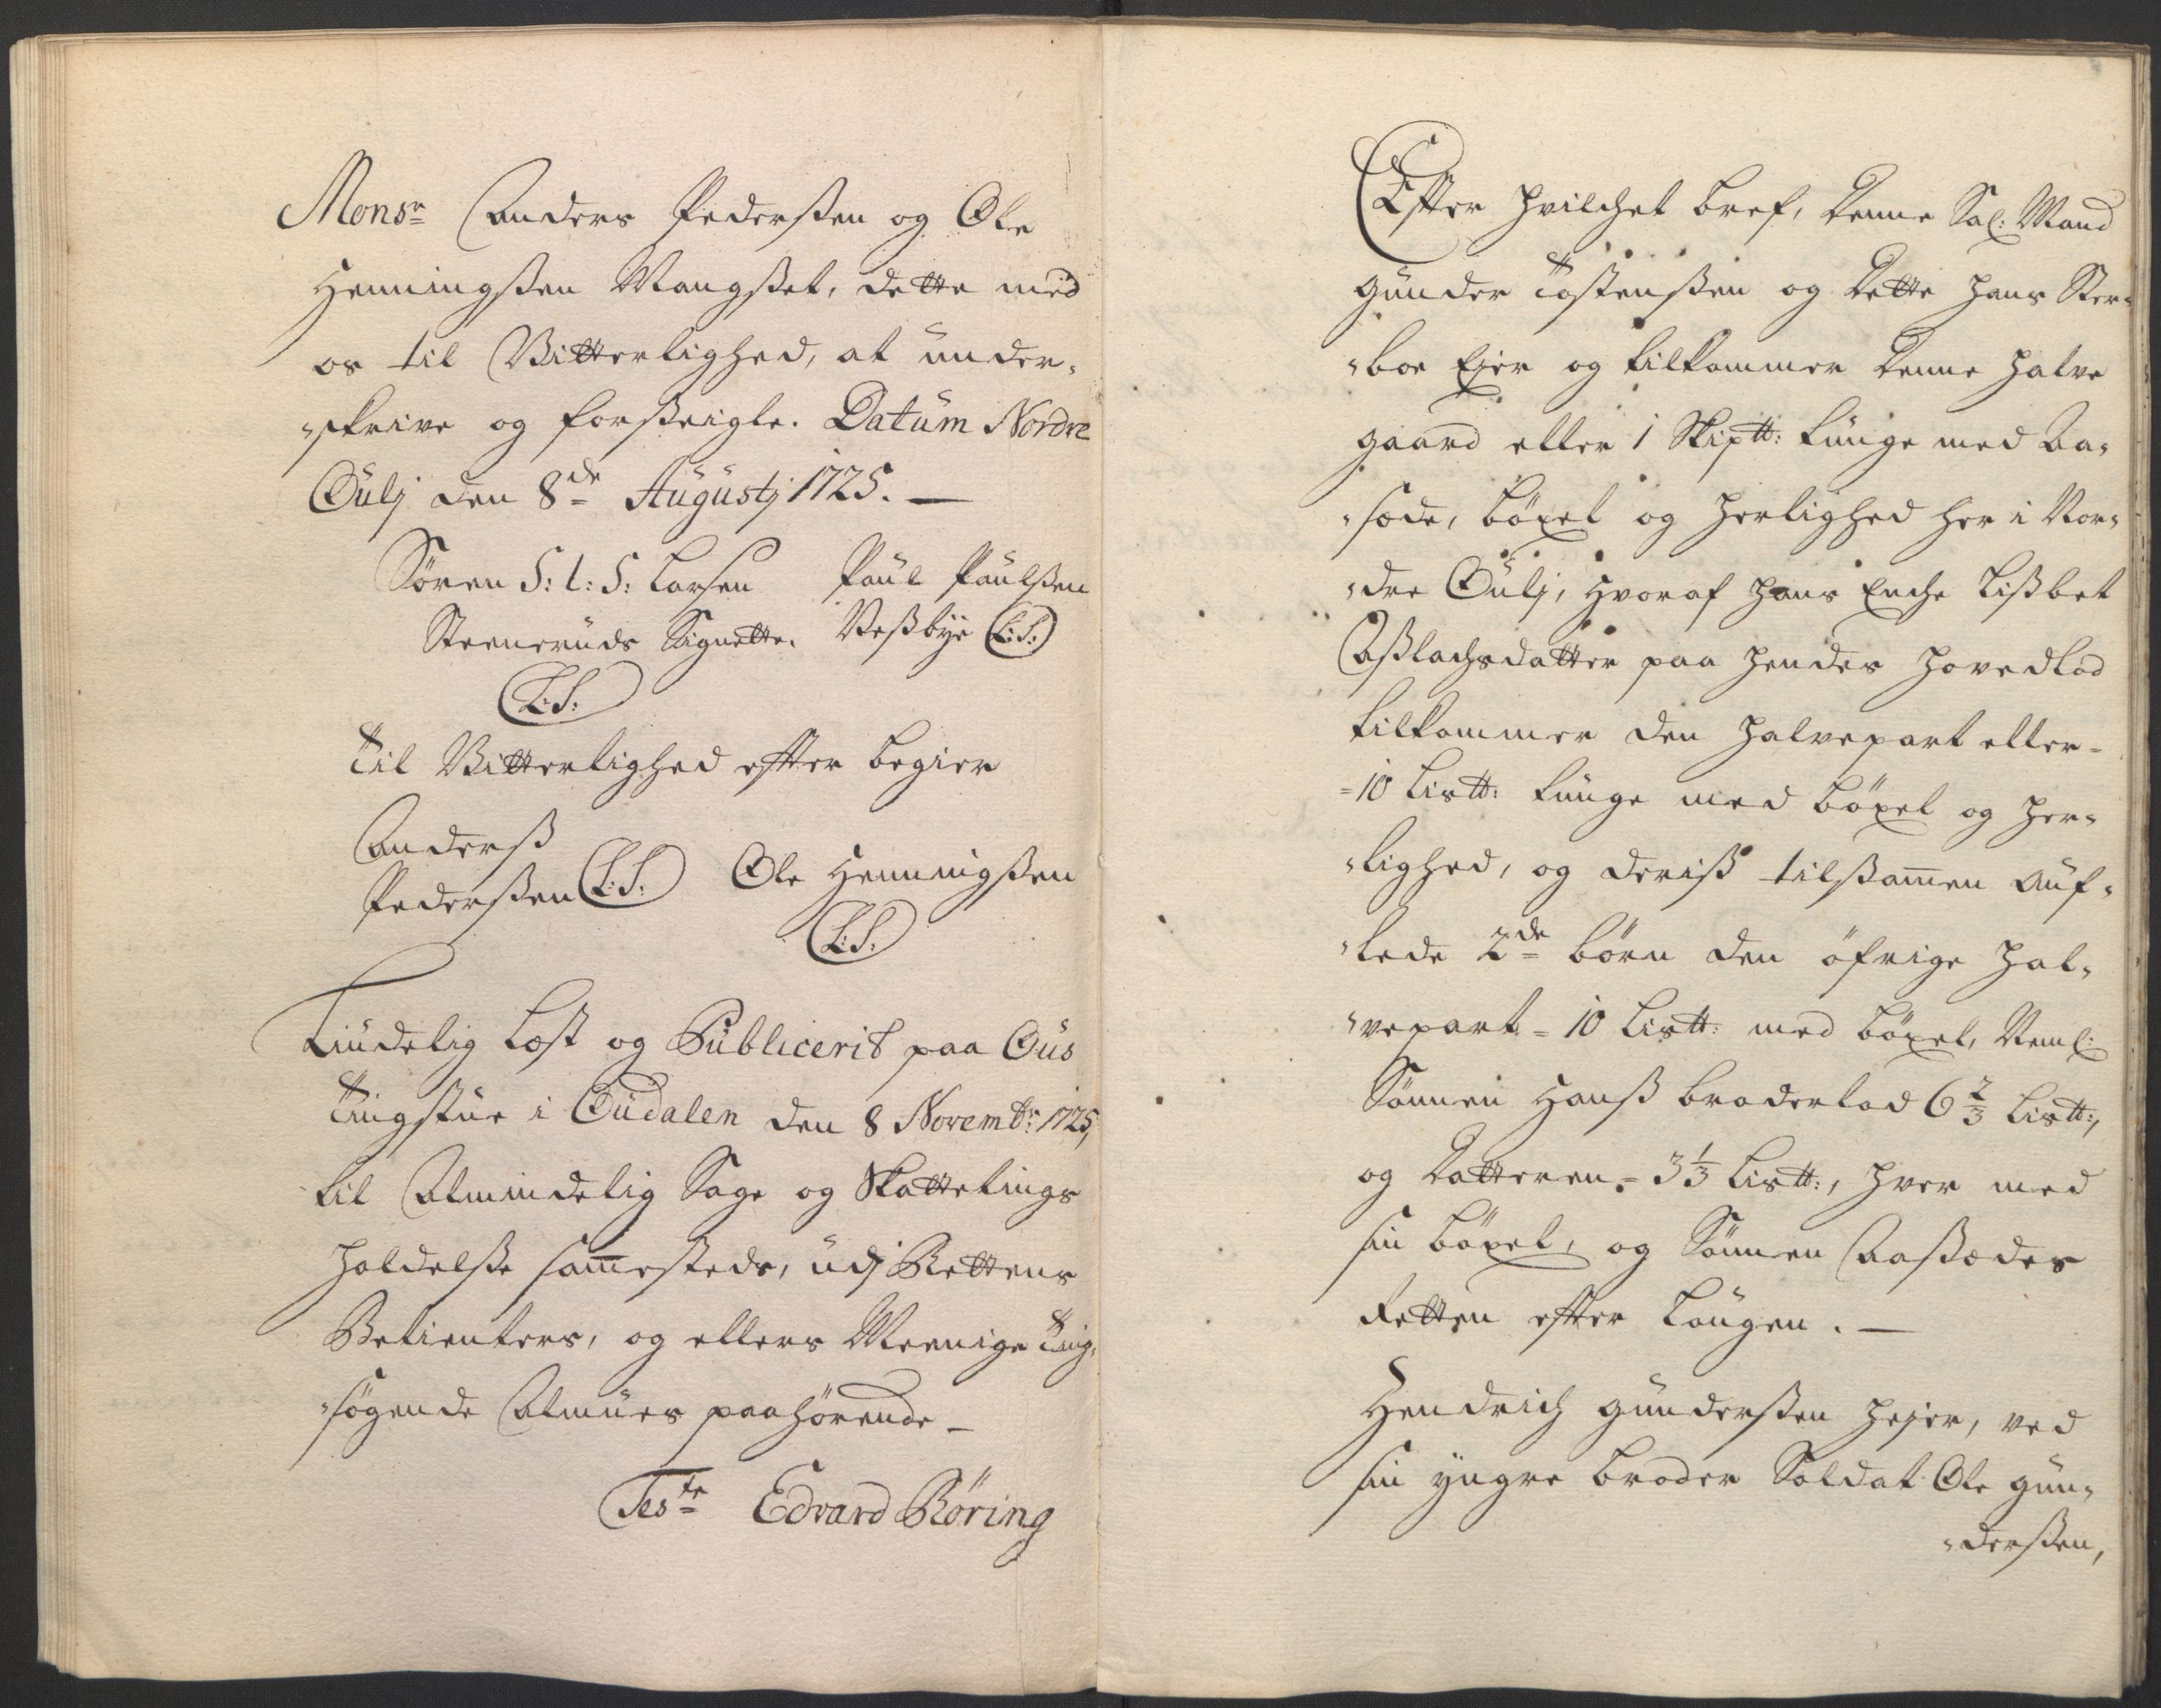 Monsr Anders Pederßen og Ole
Henningßen Wangßet, dette med
os til Vitterlighed, at under-
-skrive og forßeigle. Datum Nordre
Oulj den 8de Augustj 1725. —
Søren S: L: S: Larsen Paul Paulßen
Steneruds Signette. Veßbye (L:S:)
(L:S:)
Til Vitterlighed efter begier
Anderß
Pederßen (L:S:) Ole Henningßen
(L:S:)
Liudelig Læst og Publicerit paa Ous
Tingstue i Oudalen den 8 Novembr: 1725,
til Almindelig Sage og Skattetings
holdelße sammesteds, udj Rettens
Betienters, og ellers Meenige Ting-
-søgende Almues paahørende —
Teste Edvard Röring
Efter hvilchet bref, denne Sal: Mand
Gunder Tostenßen og dette hans Ster-
-boe Ejer og tilkommer denne halve
gaard eller 1 Skiptt: tunge med Aa-
-sæde, böxel og herlighed her i Nor-
-dre Oulj, hvoraf hans Enche Lißbet
Aßlachsdatter paa hendes hovedlod
tilkommer den halvepart eller =
= 10 Listt: tunge med böxel og her-
-lighed, og deriß tilßammen auf-
-lede 2de börn den öfrige hal-
-vepart = 10 Listt: med böxel, Neml:
Sönnen Hanß broderlod 6 2/3 Listt:,
og datteren = 3 1/3 Listt:, hver med
sin böxel, og Sönnen Aaßædes
Retten efter Lougen. —
Hendrich Gunderßen hejer, ved
sin yngre broder Soldat Ole Gun-
-derßen,